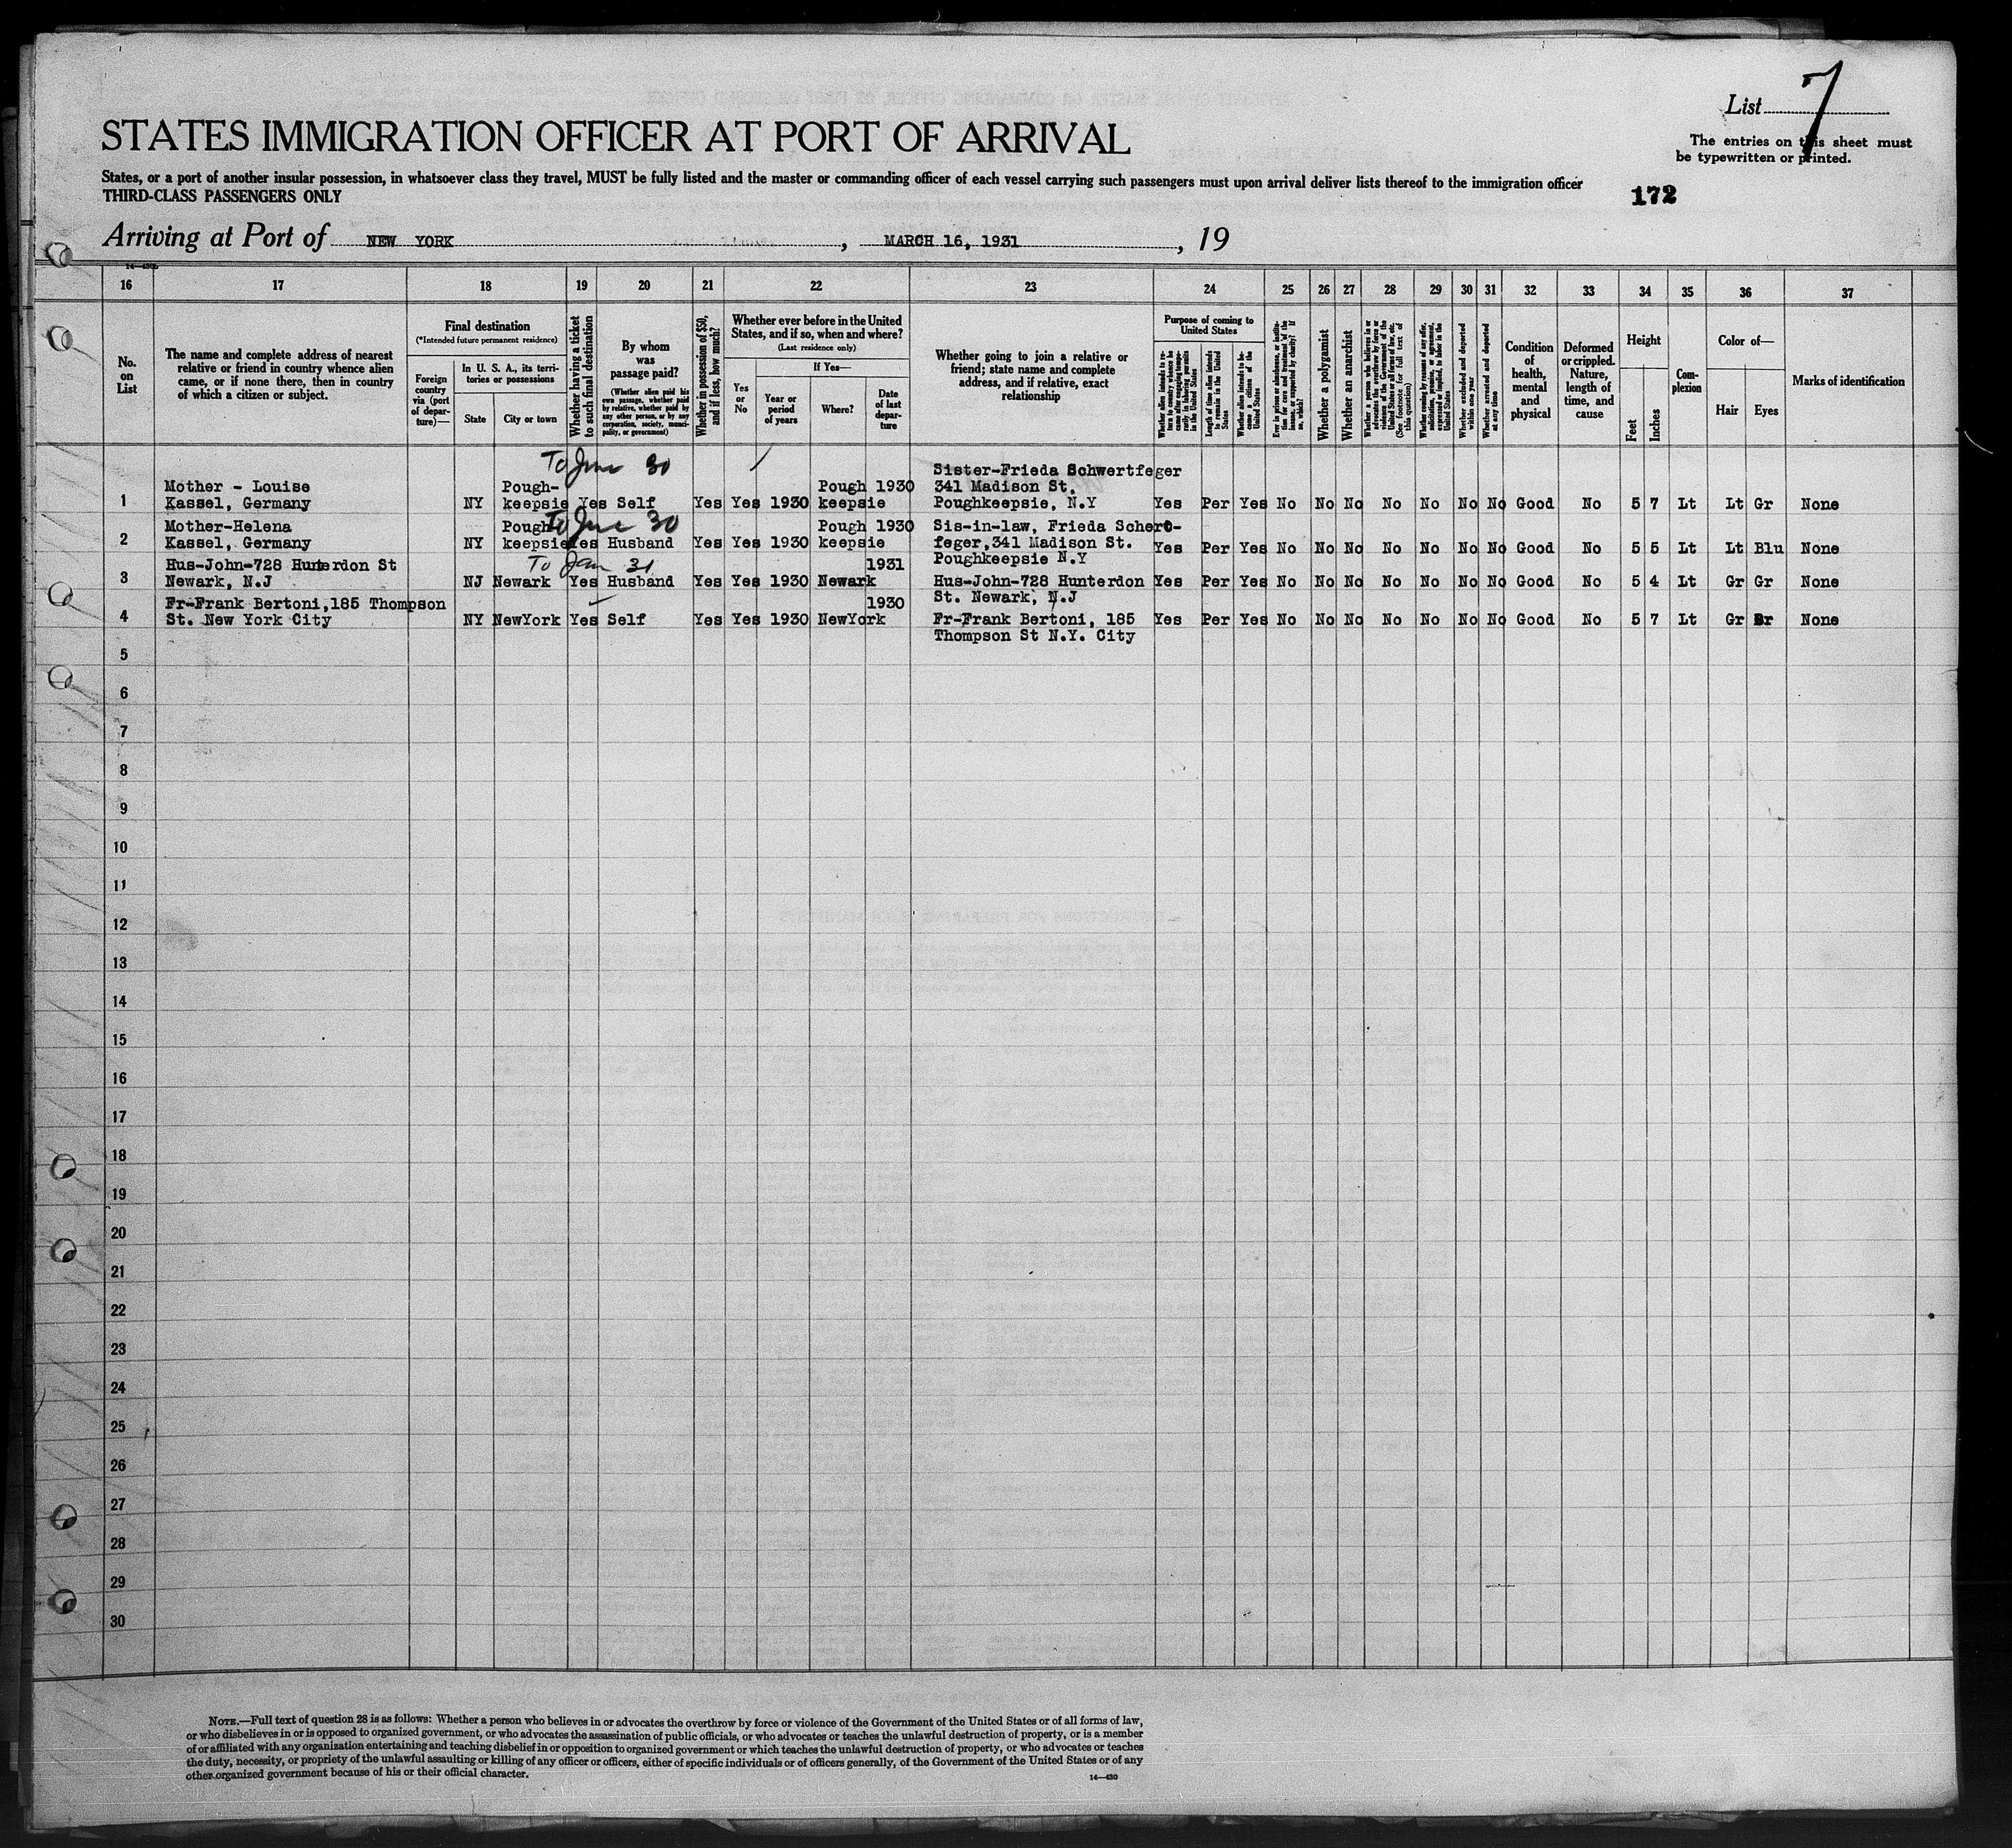 List 7
The entries on this sheet must
be typewritten or printed.
STATES IMMIGRATION OFFICER AT PORT OF ARRIVAL
States, or a port of another insular possession, in whatsoever class they travel, MUST be fully listed and the master or commanding officer of each vessel carrying such passengers must upon arrival deliver lists thereof to the immigration officer
THIRD-CLASS PASSENGERS ONLY
172
Arriving at Port of NEW YORK, MARCH 16, 1931, 19
16 17 18 19 20 21 22 23 24 25 26 27 28 29 30 31 32 33 34 35 36 37
No. on List
The name and complete address of nearest
relative or friend in country whence alien
came, or if none there, then in country
of which a citizen or subject.
Final destination
(*Intended future permanent residence)
Foreign country via (port of departure)—
In U. S. A., its territories or possessions
State
City or town
Whether having a ticket to such final destination
By whom was passage paid?
(Whether alien paid his own passage, whether paid by relative, whether paid by any other person, or by any corporation, society, municipality, or government)
Whether in possession of $50, and if less, how much?
Whether ever before in the United States, and if so, when and where?
(Last residence only)
Yes or No
If Yes—
Year or period of years
Where?
Date of last departure
Whether going to join a relative or
friend; state name and complete
address, and if relative, exact
relationship
Purpose of coming to United States
Whether alien intends to return to country whence he came after engaging temporarily in laboring pursuits in the United States
Length of time alien intends to remain in the United States
Whether alien intends to become a citizen of the United States
Ever in prison or almshouse, or institution for care and treatment of the insane, or supported by charity? If so, which?
Whether a polygamist
Whether an anarchist
Whether a person who believes in or advocates the overthrow by force or violence of the Government of the United States or all forms of law, etc. (See footnote for full text of this question)
Whether coming by reason of any offer, solicitation, promise, or agreement, expressed or implied, to labor in the United States
Whether excluded and deported within one year
Whether arrested and deported at any time
Condition of health, mental and physical
Deformed or crippled. Nature, length of time, and cause
Height
Feet
Inches
Complexion
Color of—
Hair
Eyes
Marks of identification
To June 30
Mother - Louise Pough- Pough 1930 Sister-Frieda Schwertfeger
341 Madison St.
1 Kassel, Germany NY keepsie Yes Self Yes Yes 1930 keepsie Poughkeepsie, N.Y Yes Per Yes No No No No No No No Good No 5 7 Lt Lt Gr None
To June 30
Mother-Helena Pough Pough 1930 Sis-in-law, Frieda Schert-
2 Kassel, Germany NY keepsie Yes Husband Yes Yes 1930 keepsie feger,341 Madison St. Yes Per Yes No No No No No No No Good No 5 5 Lt Lt Blu None
Poughkeepsie N.Y
To Jan 31
Hus-John-728 Hunterdon St 1931
3 Newark, N.J NJ Newark Yes Husband Yes Yes 1930 Newark Hus-John-728 Hunterdon Yes Per Yes No No No No No No No Good No 5 4 Lt Gr Gr None
St. Newark, N.J
Fr-Frank Bertoni,185 Thompson 1930
4 St. New York City NY NewYork Yes Self Yes Yes 1930 NewYork Fr-Frank Bertoni, 185 Yes Per Yes No No No No No No No Good No 5 7 Lt Gr Br None
Thompson St N.Y. City
5
6
7
8
9
10
11
12
13
14
15
16
17
18
19
20
21
22
23
24
25
26
27
28
29
30
NOTE.—Full text of question 28 is as follows: Whether a person who believes in or advocates the overthrow by force or violence of the Government of the United States or of all forms of law,
or who disbelieves in or is opposed to organized government, or who advocates the assassination of public officials, or who advocates or teaches the unlawful destruction of property, or is a member
of or affiliated with any organization entertaining and teaching disbelief in or opposition to organized government or which teaches the unlawful destruction of property, or who advocates or teaches
the duty, necessity, or propriety of the unlawful assaulting or killing of any officer or officers, either of specific individuals or of officers generally, of the Government of the United States or of any
other organized government because of his or their official character.
14—430